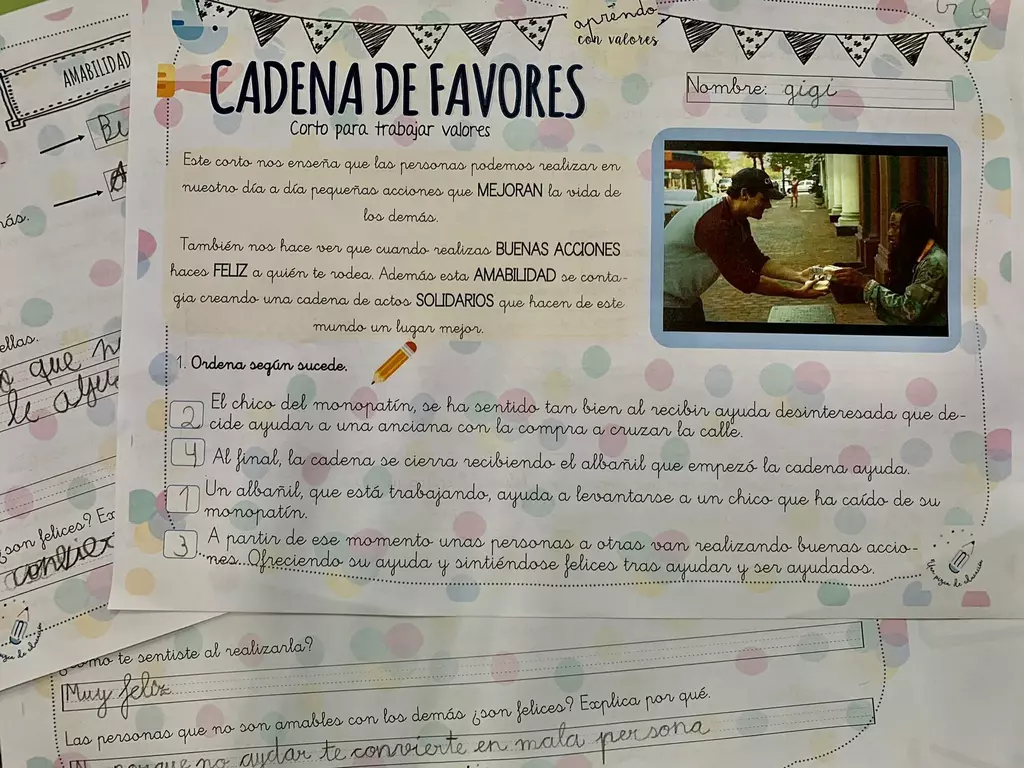 aprendo
con valores
CADENA DE FAVORES
Corto para trabajar valores
Nombre: gigi
Este corto nos enseña que las personas podemos realizar en
nuestro día a día pequeñas acciones que MEJORAN la vida de
los demás.
También nos hace ver que cuando realizas BUENAS ACCIONES
haces FELIZ a quién te rodea. Además esta AMABILIDAD se conta-
gia creando una cadena de actos SOLIDARIOS que hacen de este
mundo un lugar mejor.
1. Ordena según sucede.
2 El chico del monopatín, se ha sentido tan bien al recibir ayuda desinteresada que de-
cide ayudar a una anciana con la compra a cruzar la calle.
4 Al final, la cadena se cierra recibiendo el albañil que empezó la cadena ayuda.
1 Un albañil, que está trabajando, ayuda a levantarse a un chico que ha caído de su
monopatín.
3 A partir de ese momento unas personas a otras van realizando buenas accio-
nes. Ofreciendo su ayuda y sintiéndose felices tras ayudar y ser ayudados.
AMABILIDAD
ellas.
que
le
¿son felices? Ex
te sentiste al realizarla?
Muy feliz
Las personas que no son amables con los demás ¿son felices? Explica por qué.
porque no aydar te convierte en mala persona